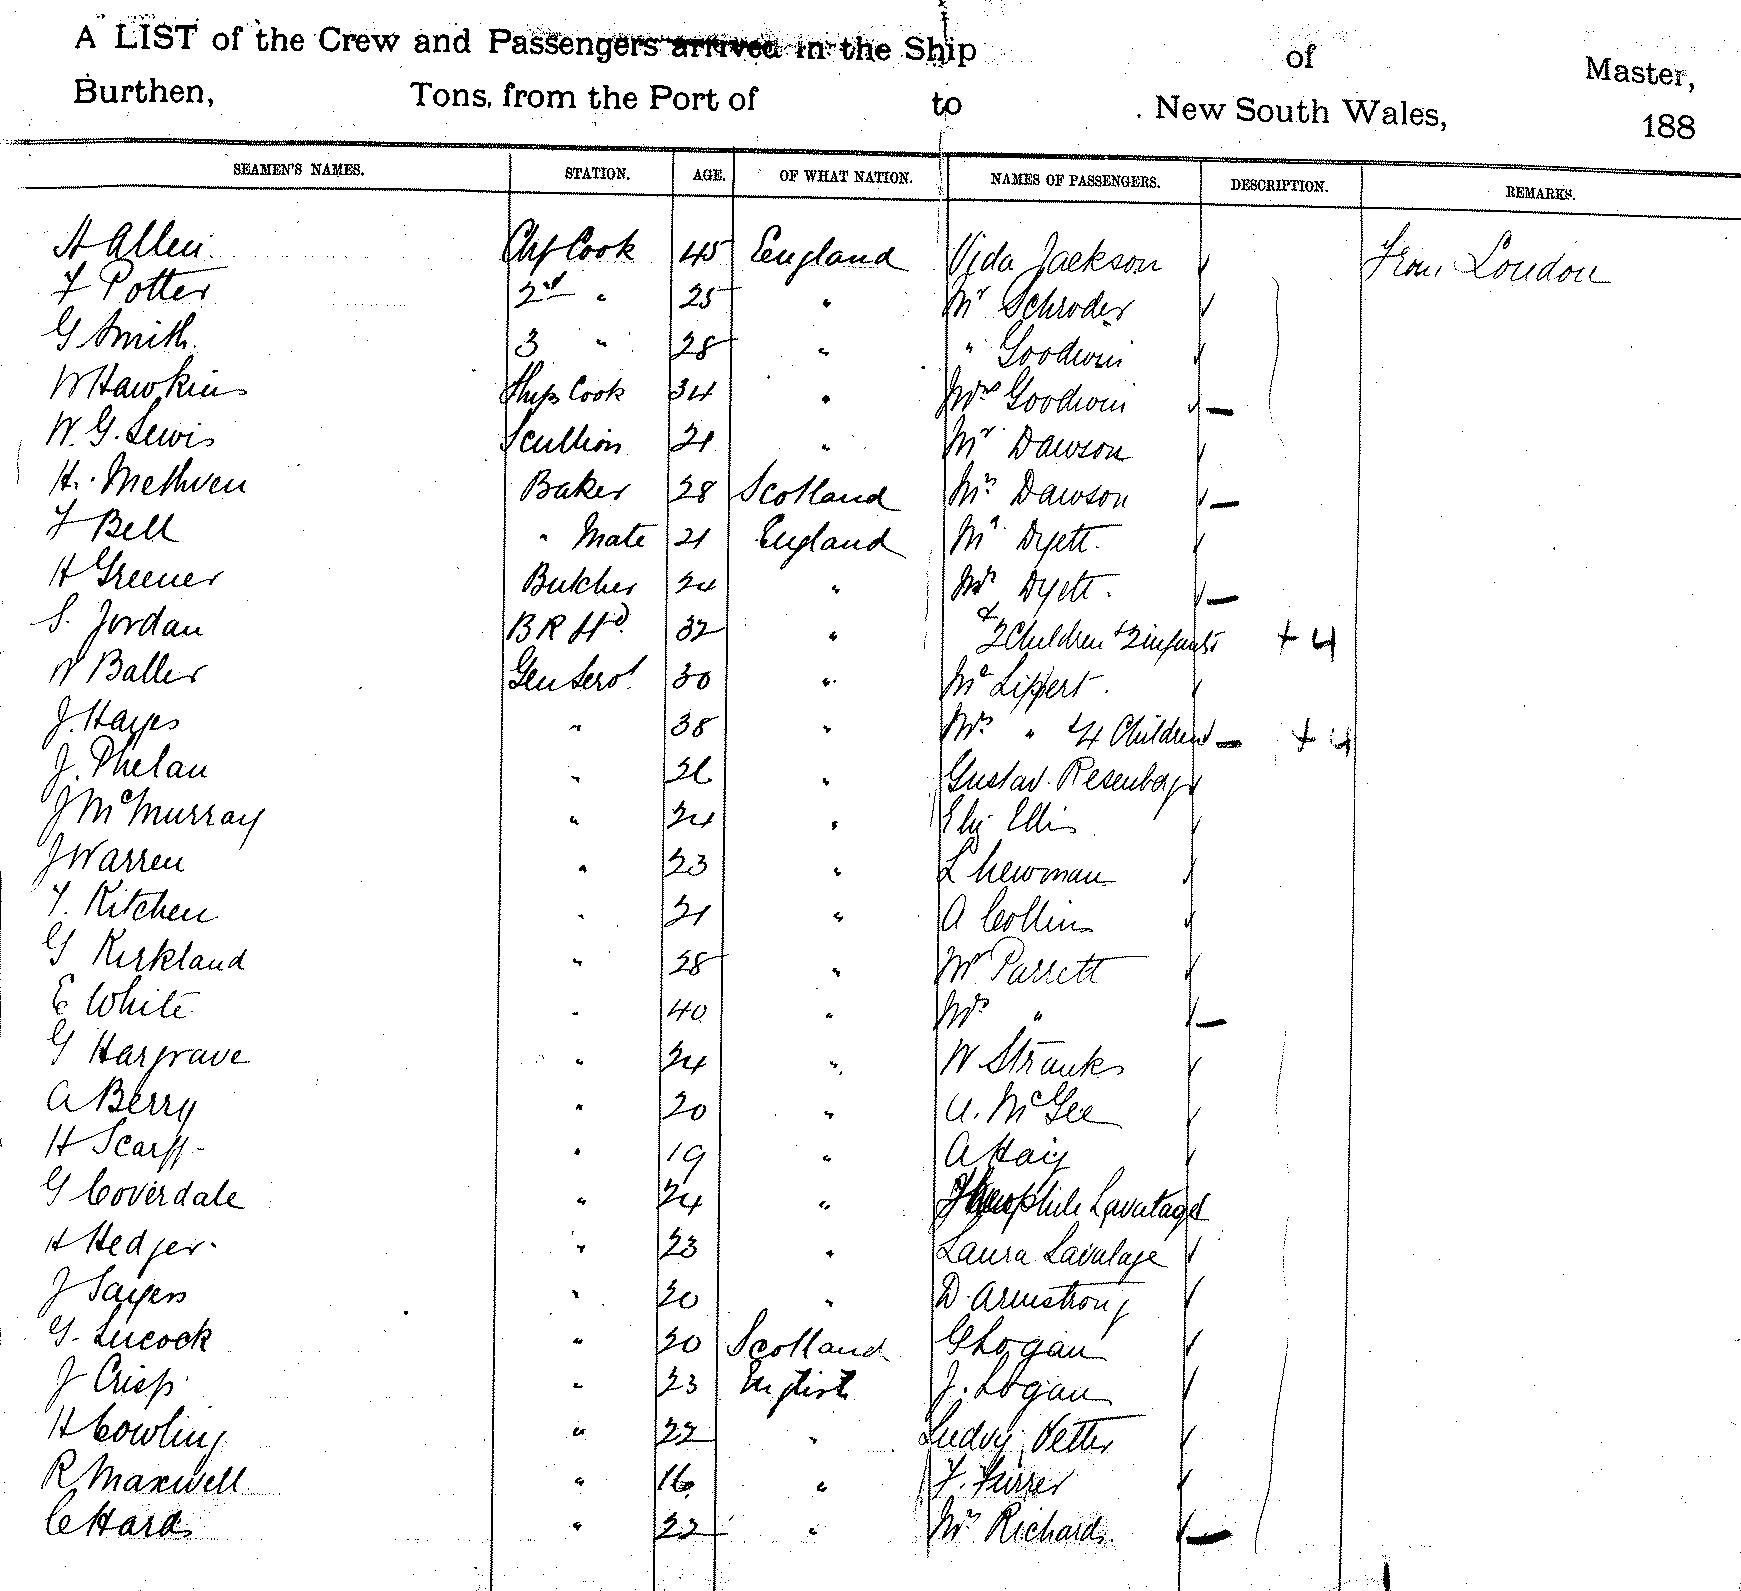 A LIST of the Crew and Passengers arrived in the Ship of Master,
Burthen, Tons, from the Port of to New South Wales, 188
SEAMEN'S NAMES. STATION. AGE. OF WHAT NATION. NAMES OF PASSENGERS. DESCRIPTION. REMARKS.
A Allen Chf Cook 45 England Vida Jackson From London
F Potter 2nd " 25 " Mr Schroder
G Smith 3 " 28 " " Goodwin
W Hawkins Ships Cook 34 " Mrs Goodwin
W. G. Lewis Scullion 21 " Mr Dawson
H. Methven Baker 28 Scotland Mrs Dawson
F Bell " Mate 21 England Mr Dyett
H Greener Butcher 24 " Mrs Dyett
S. Jordan B R Hd 32 " & 2 Children & 2 infants + 4
W Baller Gen Servt 30 " Mr Lippert
J. Hayes " 38 " Mrs " & 4 Children + 4
J. Phelan " 26 " Gustav Rosenberg
J McMurray " 24 " Eliz Ellis
J Warren " 23 " L Newman
F. Kitchen " 21 " A Collins
G Kirkland " 28 " Mr Parrett
E White " 40 " Mrs "
G Hargrave " 24 " W Stranks
A Berry " 20 " A. McGee
H Scarff " 19 " A Haig
G Coverdale " 24 " Theophile Lavatage
H Hedger " 23 " Laura Lavatage
J Sayers " 20 " D. Armstrong
G. Lucock " 20 Scotland G Logan
J Crisp " 23 English J. Logan
H Cowling " 22 " Ludvig Vetter
R Maxwell " 16 " F. Furrer
C Hards " 22 " Mrs Richards